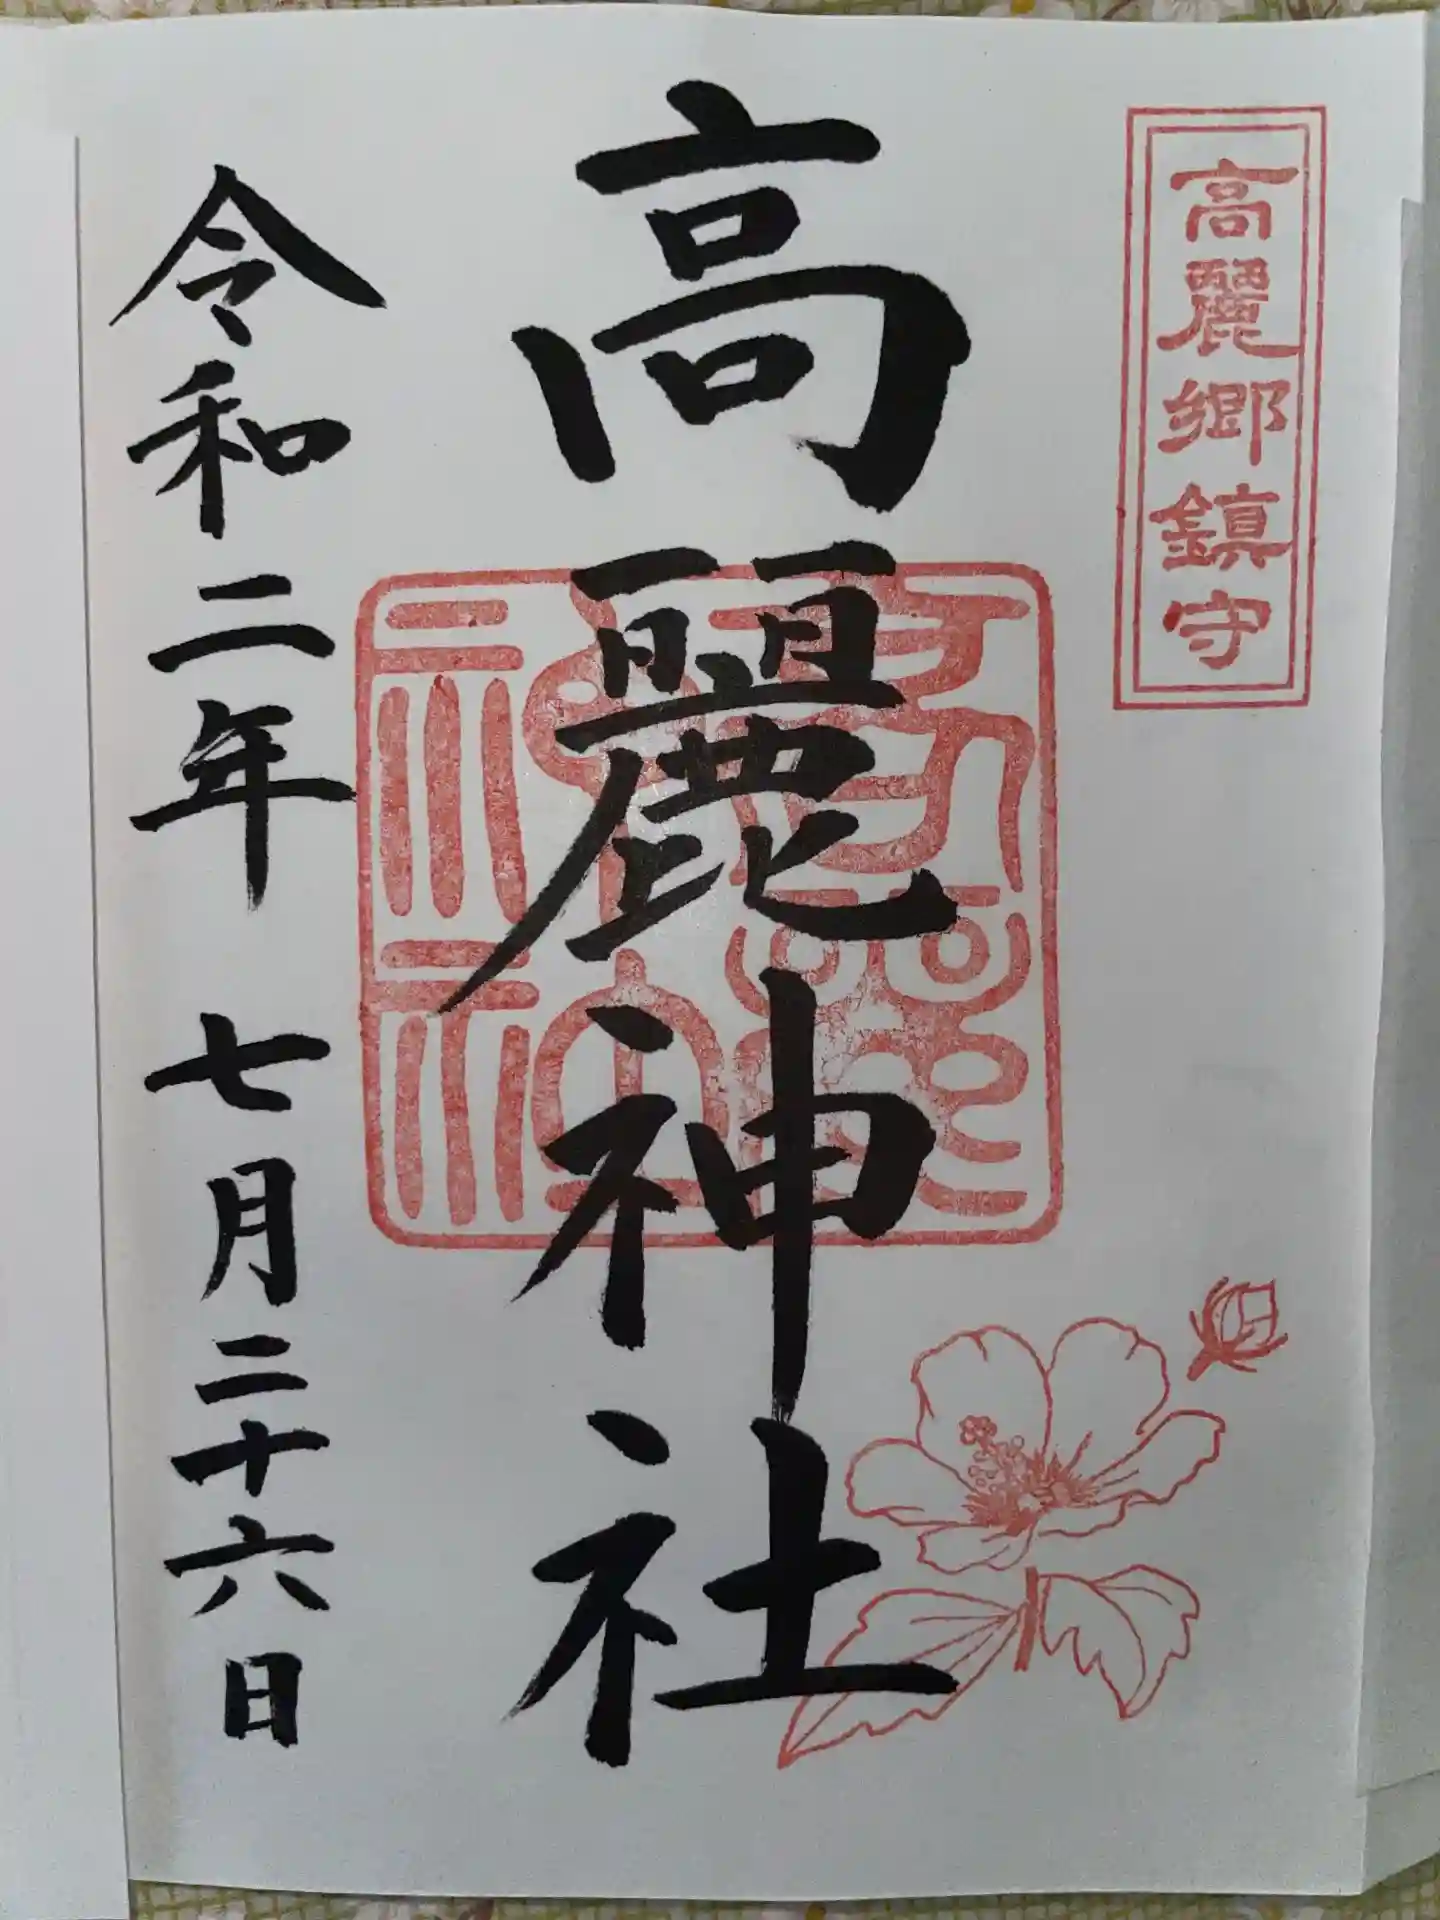 高麗郷鎮守
高麗神社
高麗神社
令和二年 七月二十六日